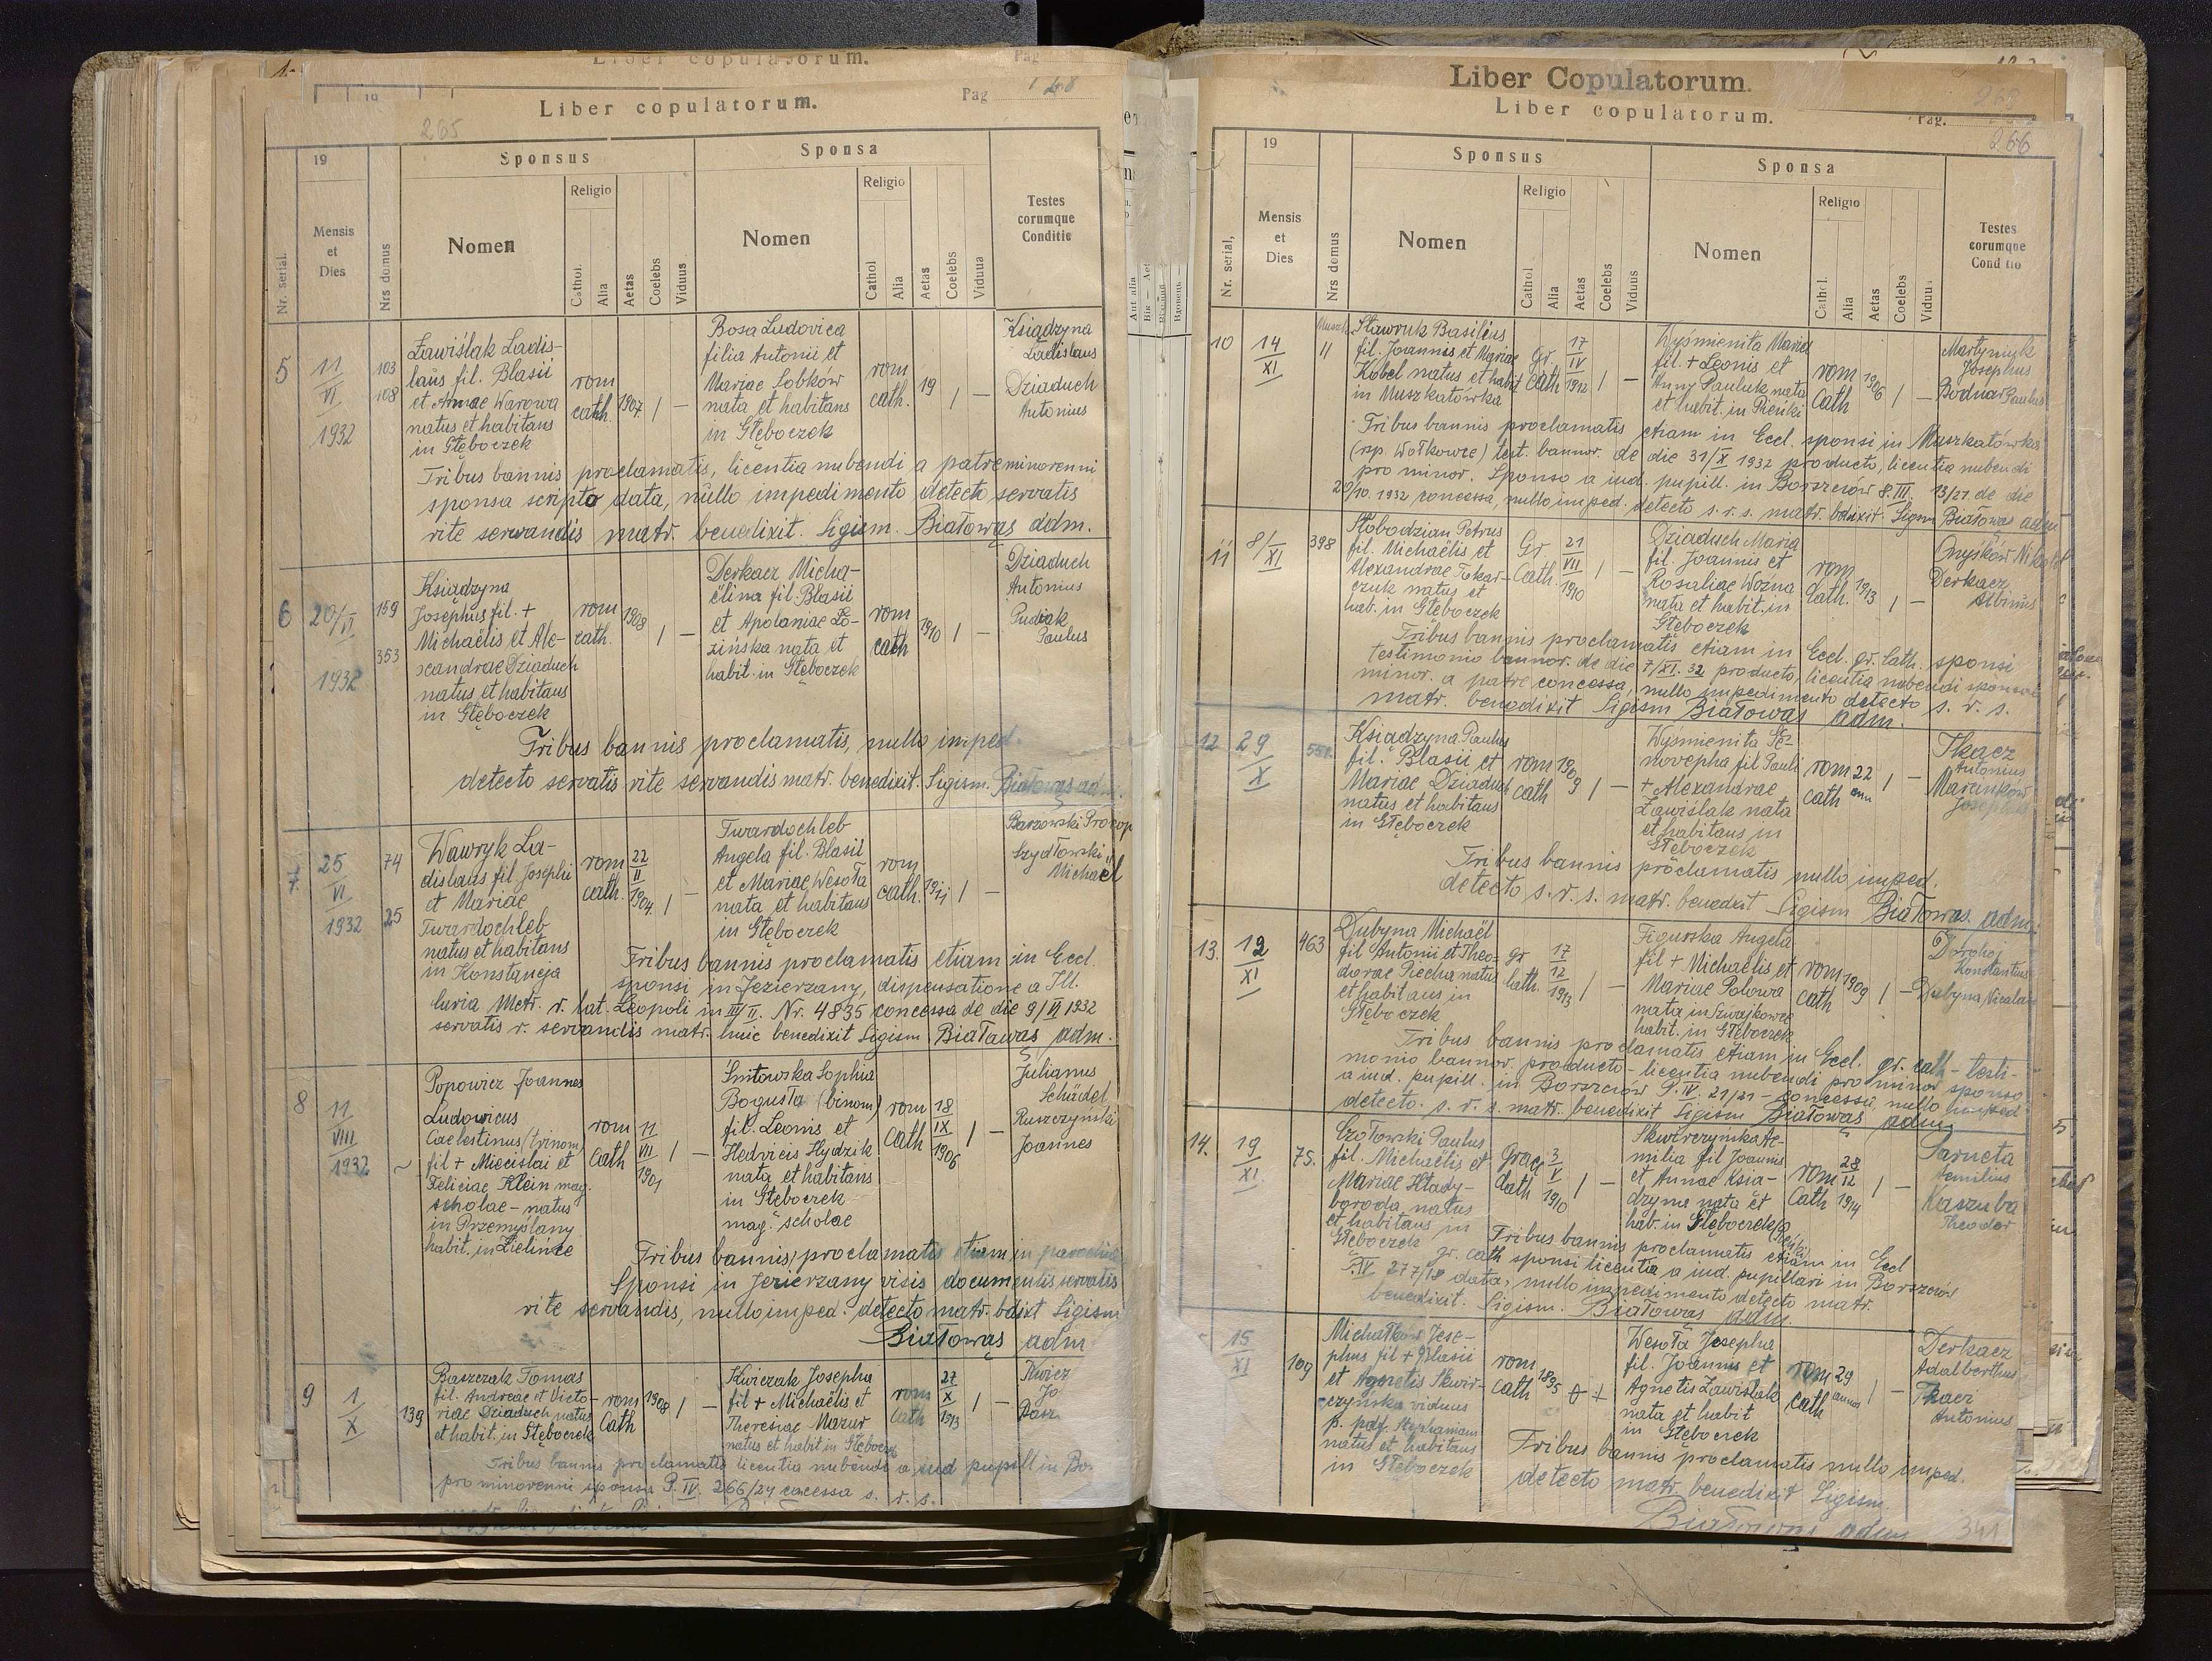 Liber copulatorum.
Pag 168
205
19
Sponsus
Sponsa
Nr. serial.
Mensis et Dies
Nrs domus
Nomen
Religio
Cathol.
Alia
Aetas
Coelebs
Viduus
Nomen
Religio
Cathol
Alia
Aetas
Coelebs
Vidua
Testes
eorumque
Conditio
5
11
VI
1932
103
108
Zawiślak Ladis-
laus fil. Blasii
et Annae Warowa
natus et habitans
in Głęboczek
rom
cath.
1907
Bosa Ludovica
filia Antonii et
Mariae Sobków
nata et habitans
in Głęboczek
rom
cath.
19
Ksiądzyna
Ladislaus
Dziaduch
Antonius
Tribus bannis proclamatis, licentia nubendi a patre minorenni
sponsa scripto data, nullo impedimento detecto servatis
rite servandis matr. benedixit. Sigism. Białowąs adm.
6
20/VI
1932
159
353
Ksiądzyna
Josephus fil. +
Michaëlis et Ale-
xandrae Dziaduch
natus et habitans
in Głęboczek
rom
cath.
1908
Derkacz Micha-
ëlina fil. Blasii
et Apoloniae Ło-
zińska nata et
habit. in Głęboczek
rom
cath
1910
Dziaduch
Antonius
Pudiak
Paulus
Tribus bannis proclamatis, nullo imped.
detecto servatis rite servandis matr. benedixit. Sigism. Białowąs adm.
7.
25
VI
1932
74
25
Wawryk La-
dislaus fil Josephi
et Mariae
Twardochleb
natus et habitans
in Konstancja
rom
cath.
22
II
1904.
Twardochleb
Angela fil. Blasii
et Mariae Wesoła
nata et habitans
in Głęboczek
rom
cath.
1911
Barzowski Prokop
Szydłowski
Michaël
Tribus bannis proclamatis etiam in Eccl.
sponsi in Jezierzany, dispensatione a Ill.
Curia Metr. r. lat. Leopoli in III/II. Nr. 4835 concessa de die 9/VI 1932
servatis r. servandis matr. huic benedixit Sigism Białowąs adm.
8
11
VIII
1932
Popowicz Joannes
Ludovicus
Caelestinus (trinom)
fil + Miecislai et
Feliciae Klein mag.
scholae - natus
in Przemyślany
habit. in Zielińce
rom
Cath
11
VII
1901
Smitowska Sophia
Bogusła (binom)
fil. Leonis et
Hedvicis Hydzik
nata et habitans
in Głęboczek
mag. scholae
rom
Cath
18
IX
1906
Julianus
Schädel
Ruszczyński
Joannes
Tribus bannis proclamatis etiam in parochia
Sponsi in Jezierzany visis documentis servatis
rite servandis, nullo imped. detecto matr. bdixt Sigism
Białowąs adm
9
1
X
139
Baszczak Tomas
fil. Andreae et Victo-
riae Dziaduch natus
et habit. in Głęboczek
rom
Cath
1908
Kwiczak Josepha
fil + Michaëlis et
Theresiae Mazur
natus et habit in Głęboczek
rom
Cath
27
X
1913
Tribus bannis proclamatis licentia nubendi a iud pupill in Bo
pro minorenni sponsa P. IV. 266/24 concessa s. r. s.
Liber Copulatorum.
Liber copulatorum.
Pag.
266
19
Sponsus
Sponsa
Nr. serial,
Mensis et Dies
Nrs domus
Nomen
Religio
Cathol
Alia
Aetas
Coelebs
Viduus
Nomen
Religio
Cathol.
Alia
Aetas
Coelebs
Testes
eorumque
10
14
XI
11
Sławruk Basilius
fil. Joannis et Mariae
Kobel natus et habit
in Muszkatówka
gr.
Cath
17
IV
1912
Wyśmienita Maria
fil. + Leonis et
Anny Pauluk nata
et habit. in Pieńki
rom
Cath
1906
Martyniuk
Josephus
Bodnar Paulus
Tribus bannis proclamatis etiam in Eccl. sponsi in Muszkatówka
(rsp. Wołkowce) test. bannor. de die 31/X 1932 producto, licentia nubendi
pro minor. Sponso a iud. pupill. in Borszczów 8. III. 13/21. de die
20/10. 1932 concessa, nullo imped. detecto s. r. s. matr. bdixit. Sigm Białowąs adm
11
8/XI
398
Słobodzian Petrus
fil. Michaëlis et
Alexandrae Tokar-
czuk natus et
hab. in Głęboczek
Gr.
Cath.
21
VII
1910
Dziaduch Maria
fil. Joannis et
Rosaliae Woźna
nata et habit. in
Głęboczek
rom
Cath.
1913
Onyśków Nikolaus
Derkacz
Albinus
Tribus bannis proclamatis etiam in Eccl. gr. Cath. sponsi
testimonio bannor. de die 7/XI. 32 producto, licentia nubendi sponsae
minor. a patre concessa, nullo impedimento detecto s. r. s.
matr. benedixit Sigism Białowąs adm.
12
29
X
551.
Ksiądzyna Paulus
fil. Blasii et
Mariae Dziaduch
natus et habitans
in Głęboczek
rom
cath
1909
Wyśmienita Ge-
novepha fil Pauli
+ Alexandrae
Zawiślak nata
et habitans in
Głęboczek
rom
cath
22
ann
Tkacz
Antonius
Marunków
Josephus
Tribus bannis proclamatis nullo imped.
detecto s. r. s. matr. benedixit Sigism Białowąs adm.
13.
12
XI
463
Dubyna Michaël
fil Antonii et Theo-
dorae Piecha natus
et habitans in
Głęboczek
gr
Cath.
17
12
1913
Figurska Angela
fil + Michaëlis et
Mariae Polowa
nata in Szwajkowce
habit. in Głęboczek
rom
cath
1909
Dorohoj
Konstantus
Dubyna Nicolaus
Tribus bannis proclamatis etiam in Eccl. gr. cath - testi-
monio bannor. producto - licentia nubendi pro minor sponso
a iud. pupill. in Borszczów P. IV. 21/21 - concessa nullo imped
detecto. s. r. s. matr. benedixit Sigism Białowąs adm
14.
19
XI.
75.
Czołowski Paulus
fil. Michaëlis et
Mariae Hlady-
boroda natus
et habitans in
Głęboczek
graec
Cath
3
V
1910
Skwirczyńska Ae-
milia fil Joannis
et Annae Ksią-
dzyna nata et
hab. in Głęboczek (Pieńki)
rom
Cath
28
12
1914
Sarneta
Aemilius
Kaszuba
Theodor
Tribus bannis proclamatis etiam in Eccl
gr. cath sponsi licentia a iud. pupillari in Borszczów
P. IV 277/18 data, nullo impedimento detecto matr.
benedixit. Sigism. Białowąs adm.
15
XI
109
Michałków Jose-
phus fil + Blasii
et Agnetis Skwir-
czyńska viduus
p. pdf. Stephaniam
natus et habitans
in Głęboczek
rom
cath
1895
Wesoła Josepha
fil. Joannis et
Agnetis Zawiślak
nata et habit
in Głęboczek
rom
cath
29
annos
Derkacz
Adalberthus
Tkacz
Antonius
Tribus bannis proclamatis nullo imped.
detecto matr. benedixit Sigism.
Białowąs adm
341